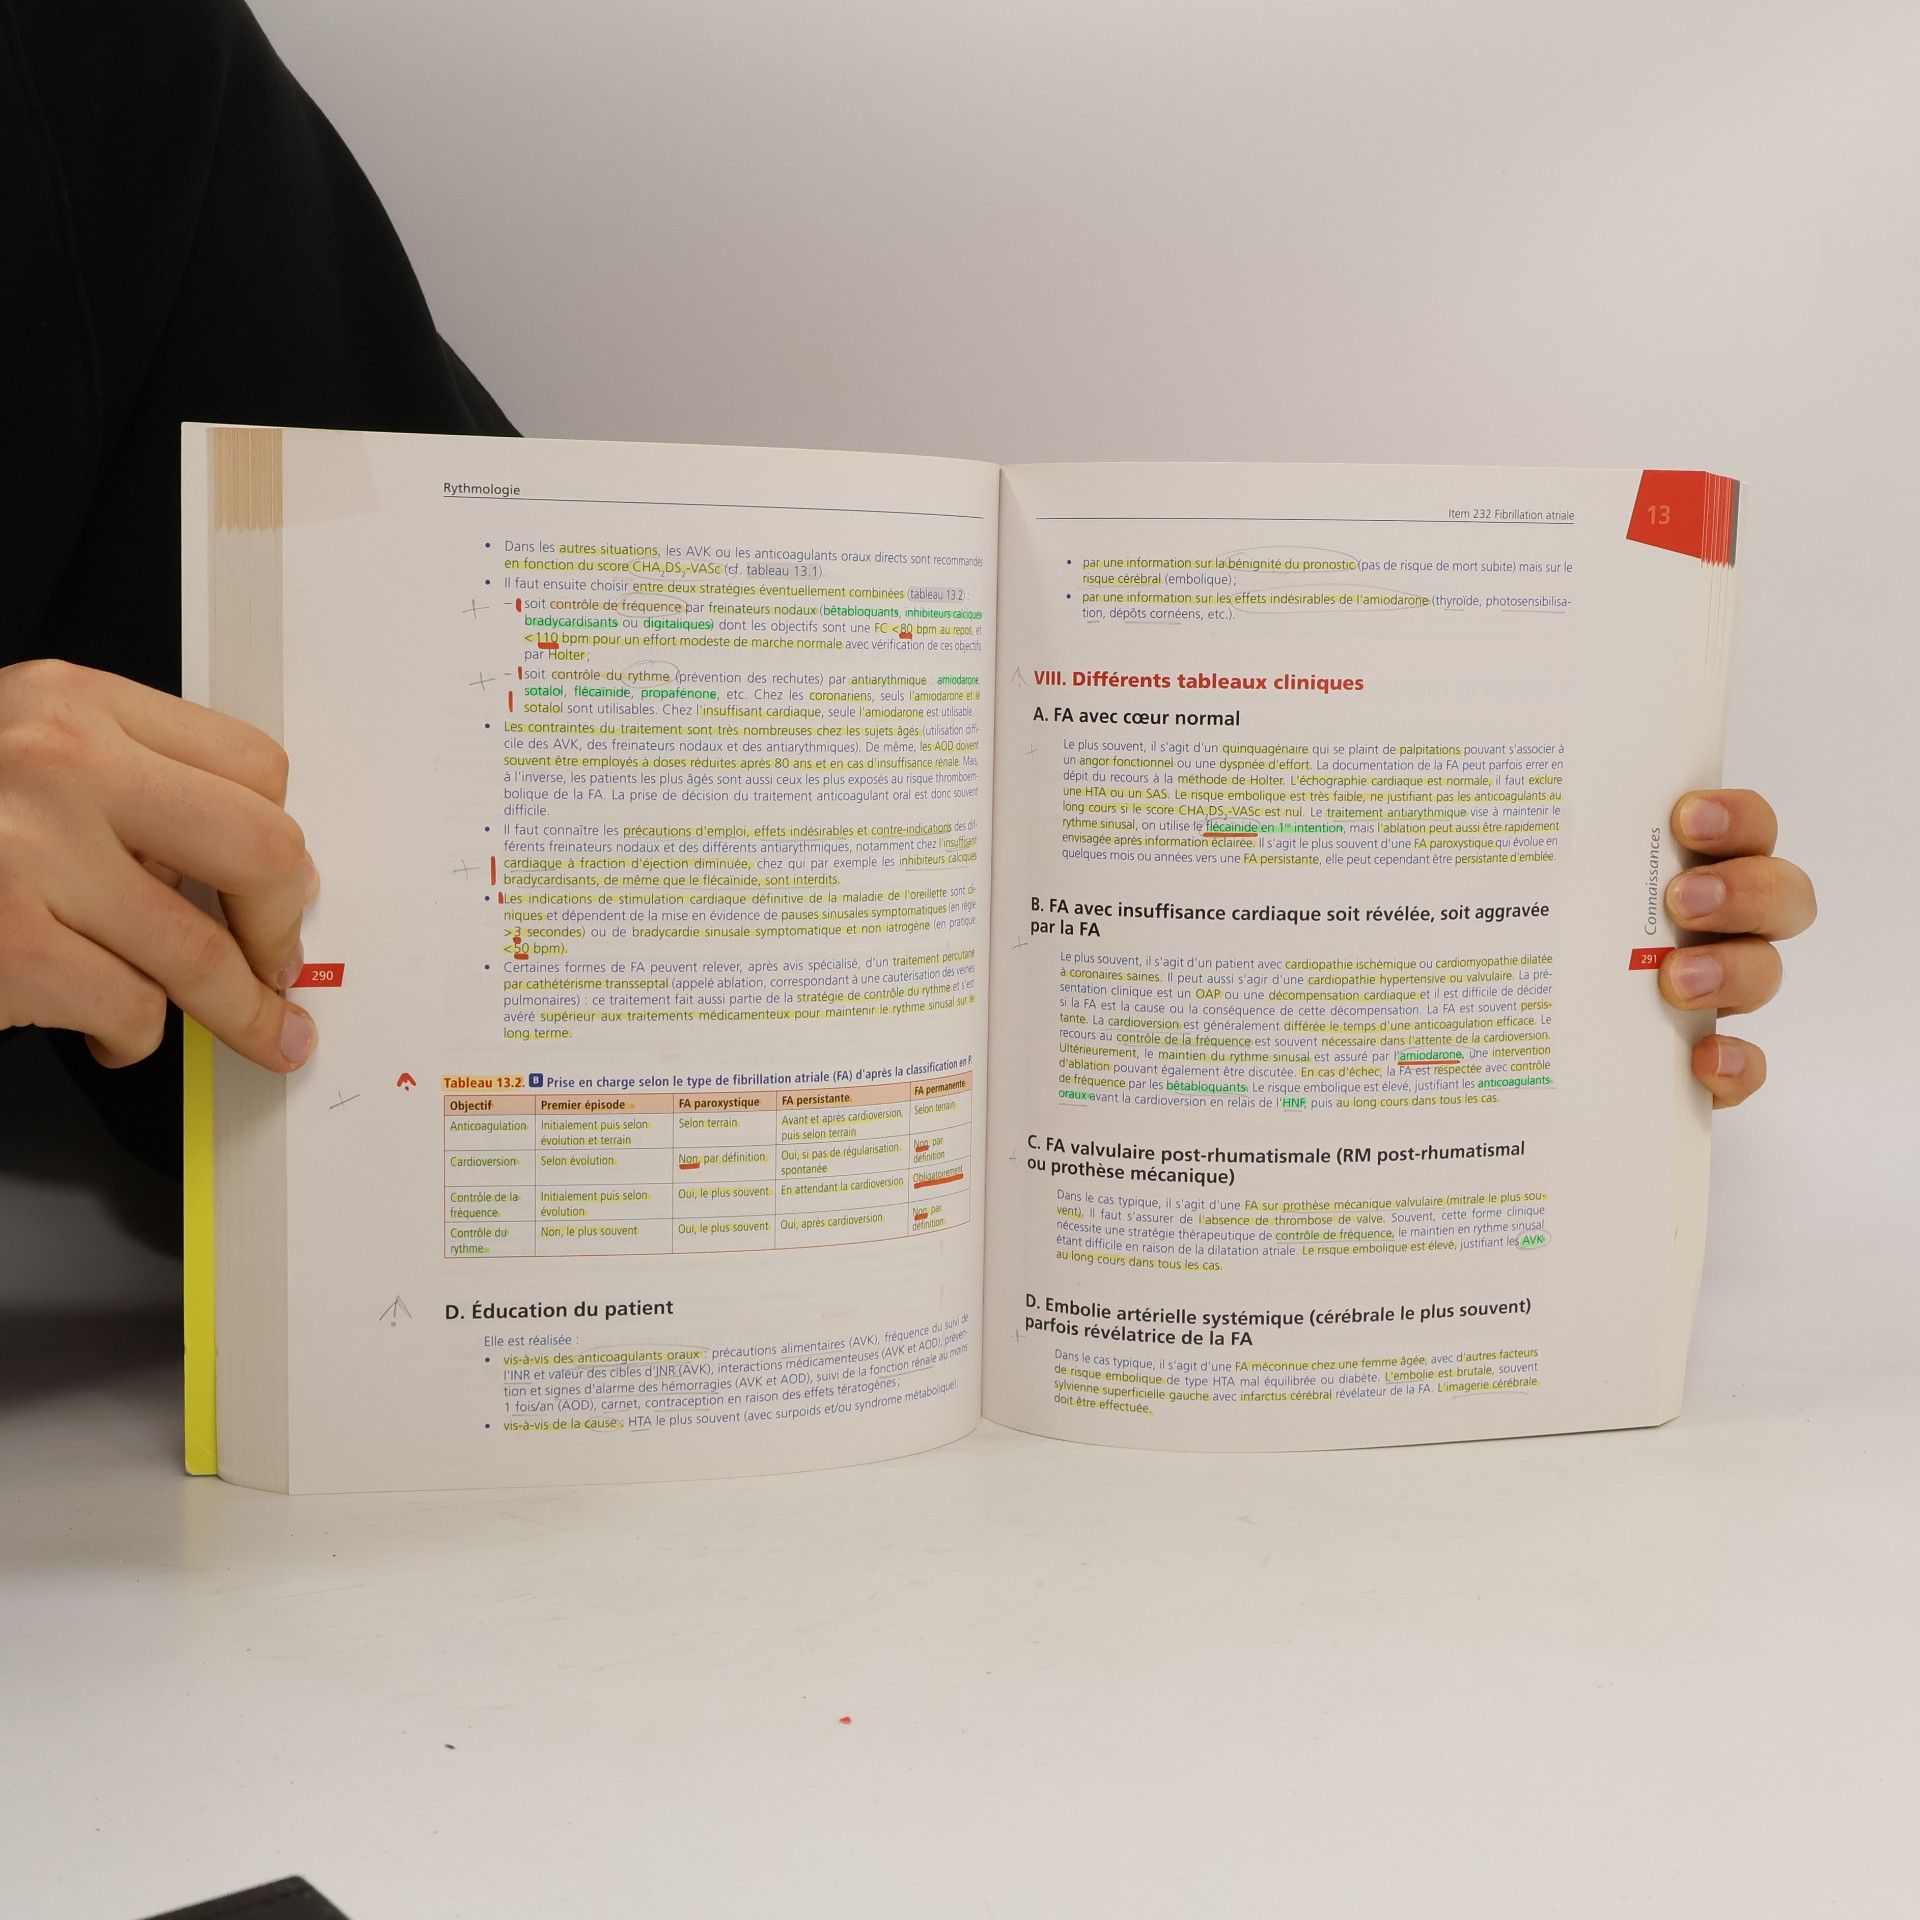 Rythmologie
• Dans les autres situations, les AVK ou les anticoagulants oraux directs sont recommandés
en fonction du score CHA2DS2-VASc (cf. tableau 13.1).
• Il faut ensuite choisir entre deux stratégies éventuellement combinées (tableau 13.2) :
– soit contrôle de fréquence par freinateurs nodaux (bêtabloquants, inhibiteurs calciques
bradycardisants ou digitaliques) dont les objectifs sont une FC <80 bpm au repos, et
<110 bpm pour un effort modeste de marche normale avec vérification de ces objectifs
par Holter ;
– soit contrôle du rythme (prévention des rechutes) par antiarythmique : amiodarone,
sotalol, flécaïnide, propafénone, etc. Chez les coronariens, seuls l'amiodarone et le
sotalol sont utilisables. Chez l'insuffisant cardiaque, seule l'amiodarone est utilisable.
• Les contraintes du traitement sont très nombreuses chez les sujets âgés (utilisation diffi-
cile des AVK, des freinateurs nodaux et des antiarythmiques). De même, les AOD doivent
souvent être employés à doses réduites après 80 ans et en cas d'insuffisance rénale. Mais,
à l'inverse, les patients les plus âgés sont aussi ceux les plus exposés au risque thromboem-
bolique de la FA. La prise de décision du traitement anticoagulant oral est donc souvent
difficile.
• Il faut connaître les précautions d'emploi, effets indésirables et contre-indications des dif-
férents freinateurs nodaux et des différents antiarythmiques, notamment chez l'insuffisant
cardiaque à fraction d'éjection diminuée, chez qui par exemple les inhibiteurs calciques
bradycardisants, de même que le flécaïnide, sont interdits.
• Les indications de stimulation cardiaque définitive de la maladie de l'oreillette sont cli-
niques et dépendent de la mise en évidence de pauses sinusales symptomatiques (en règle
>3 secondes) ou de bradycardie sinusale symptomatique et non iatrogène (en pratique
<50 bpm).
• Certaines formes de FA peuvent relever, après avis spécialisé, d'un traitement percutané
par cathétérisme transseptal (appelé ablation, correspondant à une cautérisation des veines
pulmonaires) : ce traitement fait aussi partie de la stratégie de contrôle du rythme et s'est
avéré supérieur aux traitements médicamenteux pour maintenir le rythme sinusal sur le
long terme.
290
Tableau 13.2. B Prise en charge selon le type de fibrillation atriale (FA) d'après la classification en P.
Objectif Premier épisode FA paroxystique FA persistante FA permanente
Anticoagulation Initialement puis selon évolution et terrain Selon terrain Avant et après cardioversion, puis selon terrain Selon terrain
Cardioversion Selon évolution Non, par définition Oui, si pas de régularisation spontanée Non, par définition
Contrôle de la fréquence Initialement puis selon évolution Oui, le plus souvent En attendant la cardioversion Obligatoirement
Contrôle du rythme Non, le plus souvent Oui, le plus souvent Oui, après cardioversion Non, par définition
D. Éducation du patient
Elle est réalisée :
• vis-à-vis des anticoagulants oraux : précautions alimentaires (AVK), fréquence du suivi de
l'INR et valeur des cibles d'INR (AVK), interactions médicamenteuses (AVK et AOD), préven-
tion et signes d'alarme des hémorragies (AVK et AOD), suivi de la fonction rénale au moins
1 fois/an (AOD), carnet, contraception en raison des effets tératogènes ;
• vis-à-vis de la cause : HTA le plus souvent (avec surpoids et/ou syndrome métabolique) ;
Item 232 Fibrillation atriale
13
• par une information sur la bénignité du pronostic (pas de risque de mort subite) mais sur le
risque cérébral (embolique) ;
• par une information sur les effets indésirables de l'amiodarone (thyroïde, photosensibilisa-
tion, dépôts cornéens, etc.).
VIII. Différents tableaux cliniques
A. FA avec cœur normal
Le plus souvent, il s'agit d'un quinquagénaire qui se plaint de palpitations pouvant s'associer à
un angor fonctionnel ou une dyspnée d'effort. La documentation de la FA peut parfois errer en
dépit du recours à la méthode de Holter. L'échographie cardiaque est normale, il faut exclure
une HTA ou un SAS. Le risque embolique est très faible, ne justifiant pas les anticoagulants au
long cours si le score CHA2DS2-VASc est nul. Le traitement antiarythmique vise à maintenir le
rythme sinusal, on utilise le flécaïnide en 1re intention, mais l'ablation peut aussi être rapidement
envisagée après information éclairée. Il s'agit le plus souvent d'une FA paroxystique qui évolue en
quelques mois ou années vers une FA persistante, elle peut cependant être persistante d'emblée.
B. FA avec insuffisance cardiaque soit révélée, soit aggravée
par la FA
Le plus souvent, il s'agit d'un patient avec cardiopathie ischémique ou cardiomyopathie dilatée
à coronaires saines. Il peut aussi s'agir d'une cardiopathie hypertensive ou valvulaire. La pré-
sentation clinique est un OAP ou une décompensation cardiaque et il est difficile de décider
si la FA est la cause ou la conséquence de cette décompensation. La FA est souvent persis-
tante. La cardioversion est généralement différée le temps d'une anticoagulation efficace. Le
recours au contrôle de la fréquence est souvent nécessaire dans l'attente de la cardioversion.
Ultérieurement, le maintien du rythme sinusal est assuré par l'amiodarone, une intervention
d'ablation pouvant également être discutée. En cas d'échec, la FA est respectée avec contrôle
de fréquence par les bêtabloquants. Le risque embolique est élevé, justifiant les anticoagulants
oraux avant la cardioversion en relais de l'HNF, puis au long cours dans tous les cas.
C. FA valvulaire post-rhumatismale (RM post-rhumatismal
ou prothèse mécanique)
Dans le cas typique, il s'agit d'une FA sur prothèse mécanique valvulaire (mitrale le plus sou-
vent). Il faut s'assurer de l'absence de thrombose de valve. Souvent, cette forme clinique
nécessite une stratégie thérapeutique de contrôle de fréquence, le maintien en rythme sinusal
étant difficile en raison de la dilatation atriale. Le risque embolique est élevé, justifiant les AVK
au long cours dans tous les cas.
D. Embolie artérielle systémique (cérébrale le plus souvent)
parfois révélatrice de la FA
Dans le cas typique, il s'agit d'une FA méconnue chez une femme âgée, avec d'autres facteurs
de risque embolique de type HTA mal équilibrée ou diabète. L'embolie est brutale, souvent
sylvienne superficielle gauche avec infarctus cérébral révélateur de la FA. L'imagerie cérébrale
doit être effectuée.
Connaissances
291